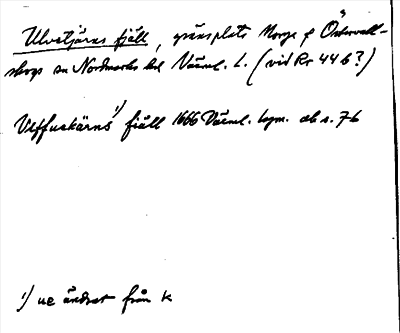 Ulvetjärns fjäll, gränsplats Norge o Östervall-
skogs sn Nordmarks hd Värml. l. (vid Rr 44 b?)
Ulffuekärns 1) fiäll 1666 Värml. hym. ab s. 76
1) ue ändrat från k